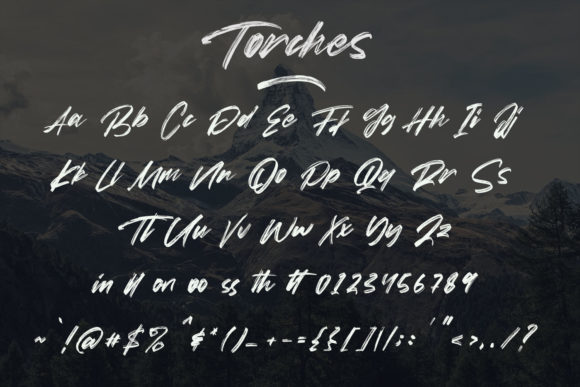 Torches
Aa Bb Cc Dd Ee Ff Gg Hh Ii Jj
Kk Ll Mm Nn Oo Pp Qq Rr Ss
Tt Uu Vv Ww Xx Yy Zz
in ll on oo ss th tt 0123456789
~`!@#$%^&*()_+-={}[]|\/:;'"<>,./?